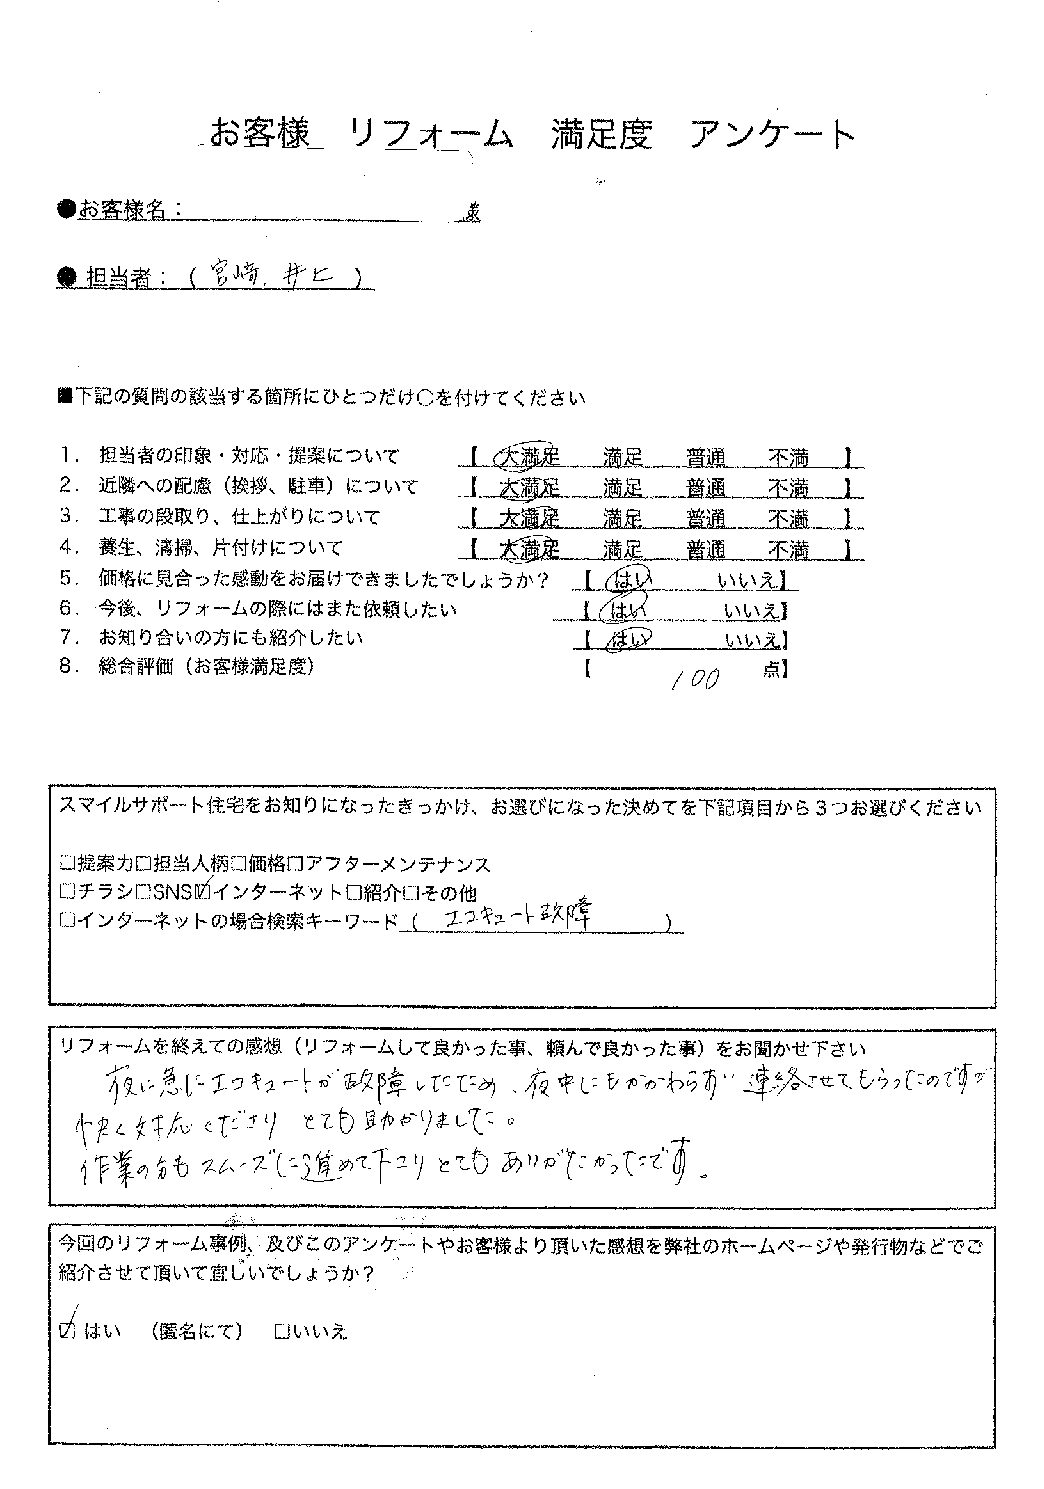 お客様 リフォーム 満足度 アンケート
●お客様名： 様
●担当者：（宮崎. 井上）
■下記の質問の該当する箇所にひとつだけ○を付けてください
1. 担当者の印象・対応・提案について 【 大満足 満足 普通 不満 】
2. 近隣への配慮（挨拶、駐車）について 【 大満足 満足 普通 不満 】
3. 工事の段取り、仕上がりについて 【 大満足 満足 普通 不満 】
4. 養生、清掃、片付けについて 【 大満足 満足 普通 不満 】
5. 価格に見合った感動をお届けできましたでしょうか？ 【 はい いいえ】
6. 今後、リフォームの際にはまた依頼したい 【 はい いいえ】
7. お知り合いの方にも紹介したい 【 はい いいえ】
8. 総合評価（お客様満足度） 【 100 点】
スマイルサポート住宅をお知りになったきっかけ、お選びになった決めてを下記項目から３つお選びください
□提案力□担当人柄□価格□アフターメンテナンス
□チラシ□SNS☑インターネット□紹介□その他
□インターネットの場合検索キーワード（ エコキュート故障 ）
リフォームを終えての感想（リフォームして良かった事、頼んで良かった事）をお聞かせ下さい
夜に急にエコキュートが故障したため、夜中にもかかわらず 連絡させてもらったのですが
快く対応くださり とても助かりました。
作業の方も スムーズに進めて下さり とても ありがたかったです。
今回のリフォーム事例、及びこのアンケートやお客様より頂いた感想を弊社のホームページや発行物などでご
紹介させて頂いて宜しいでしょうか？
☑はい （匿名にて） □いいえ